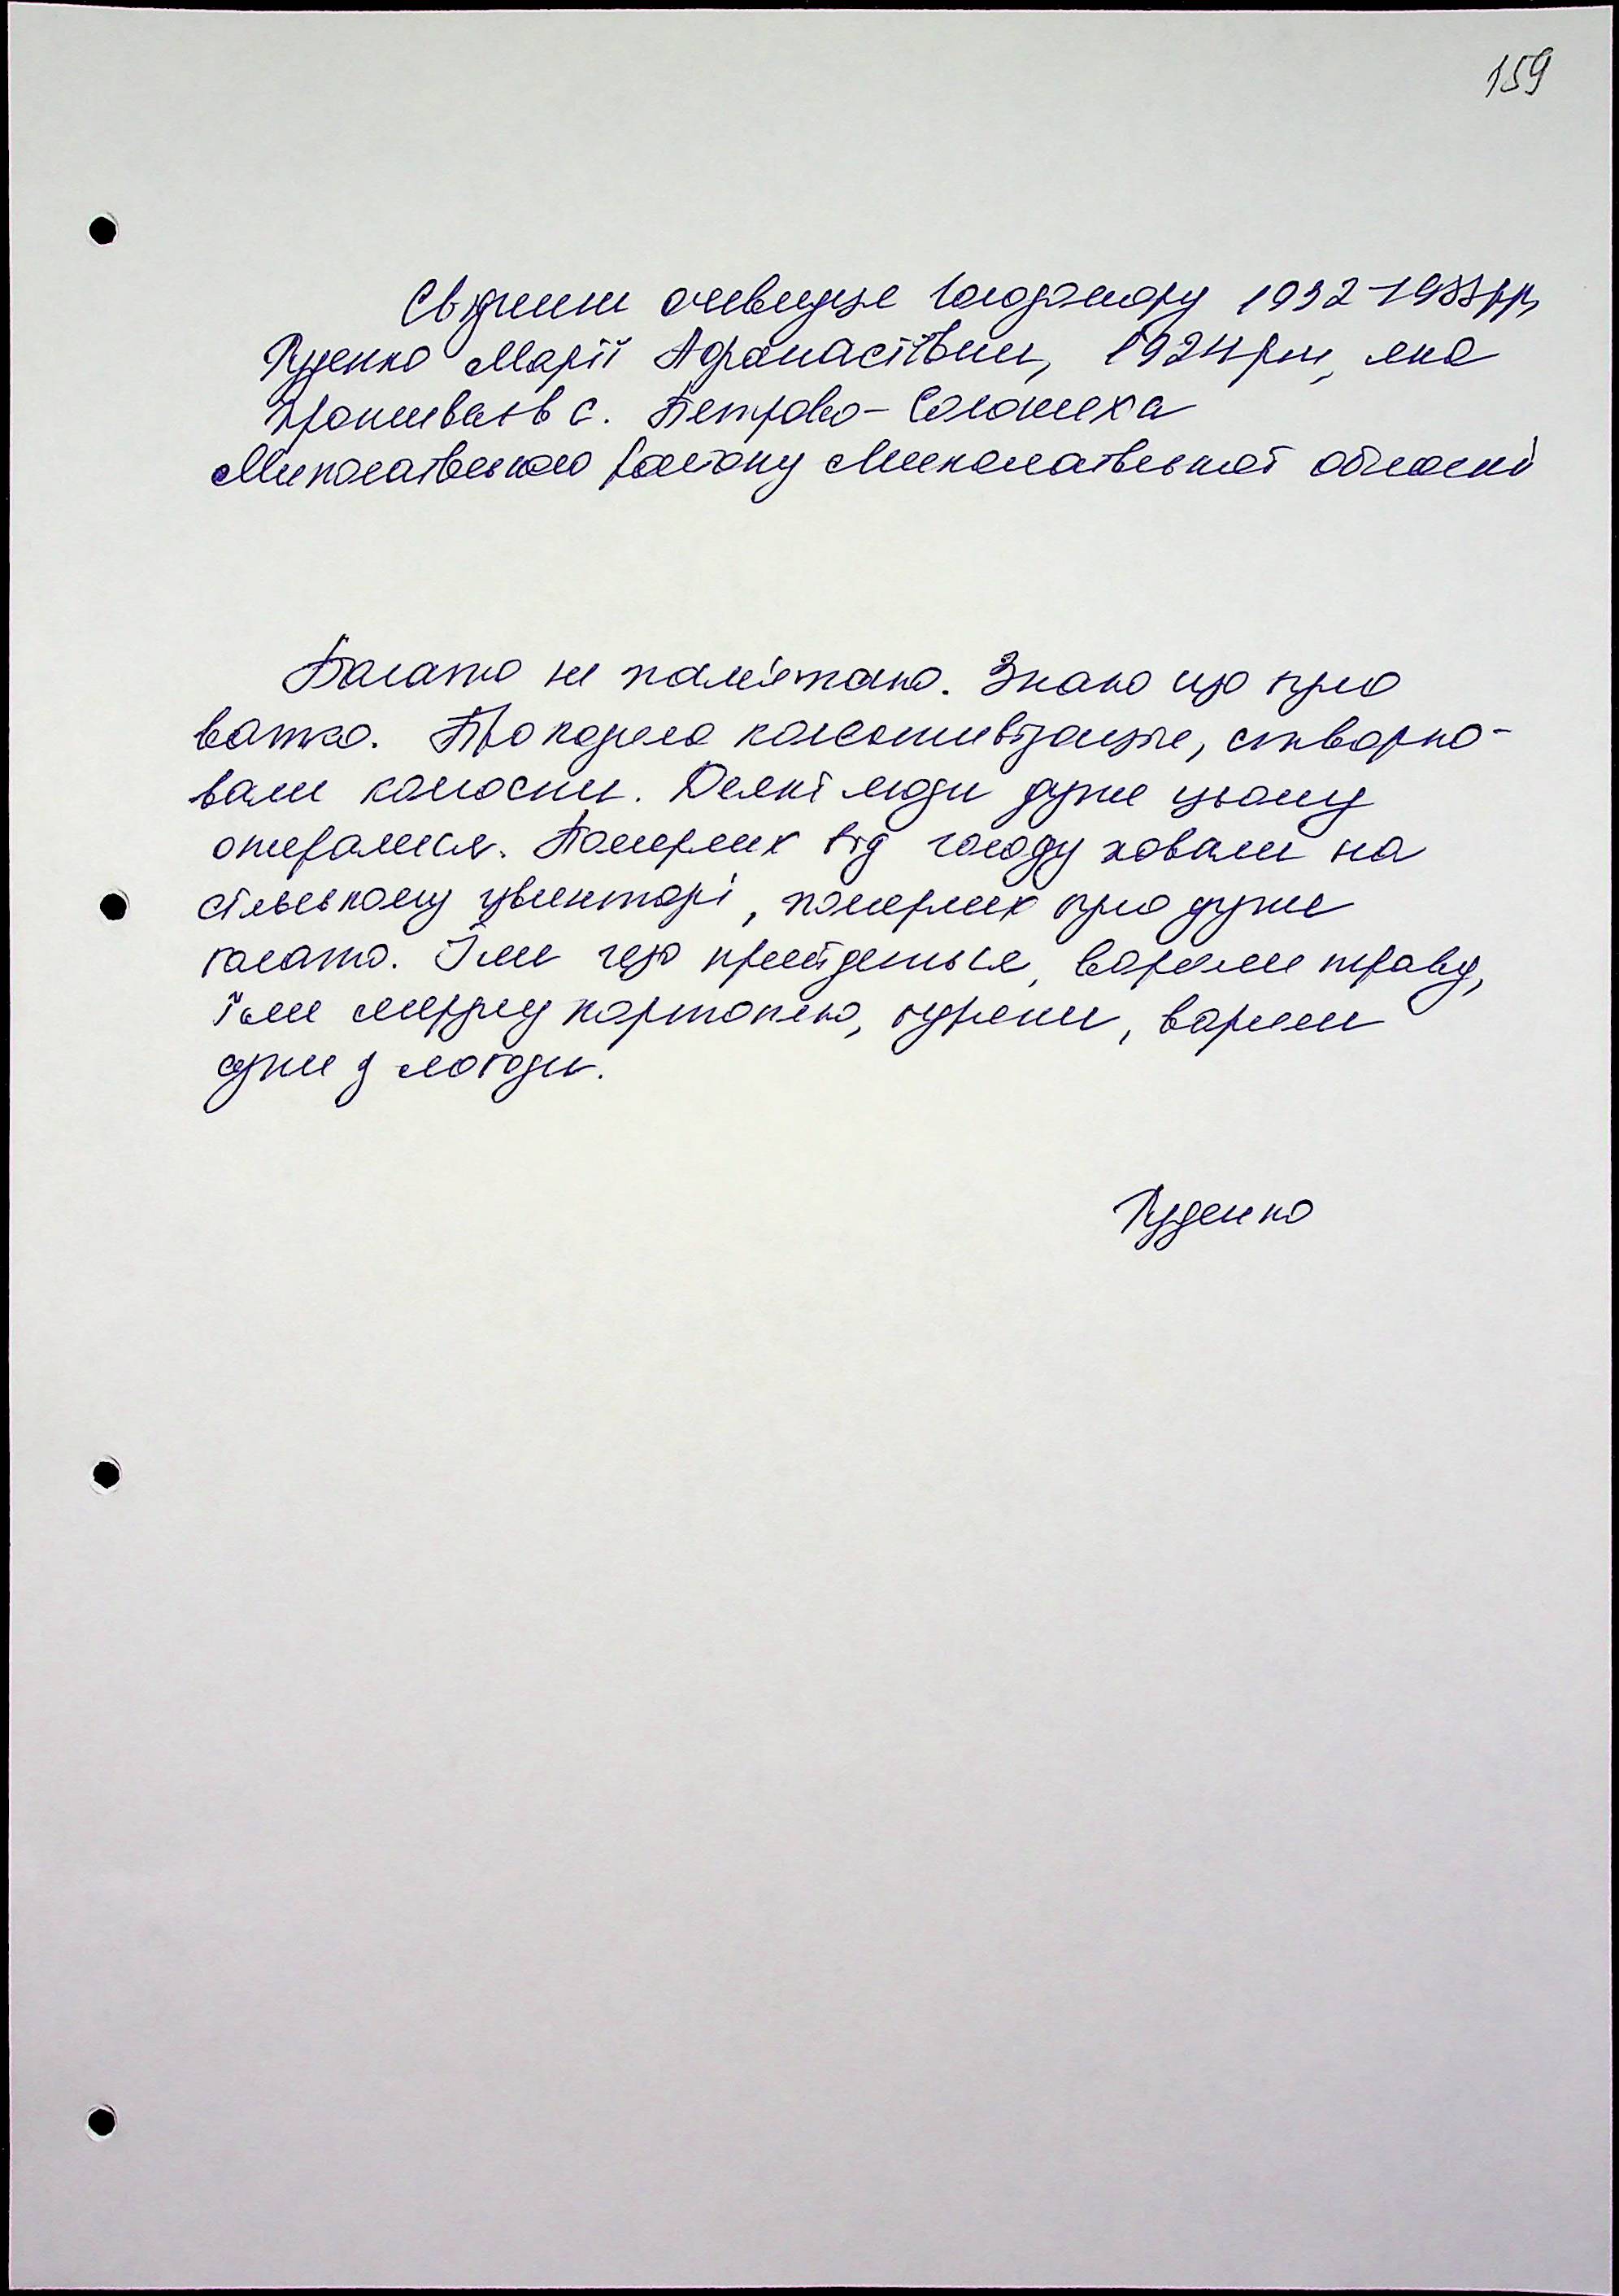 159
Свідчення очевидця Голодомору 1932-1933рр,
Руденко Марії Афанасіївни, 1924рн, яка
проживає в с. Петрово-Солониха
Миколаївського району Миколаївської області
Багато не пам'ятаю. Знаю що було
важко. Проходила колективізація, створю-
вали колгоспи. Деякі люди дуже цьому
опиралися. Померлих від голоду ховали на
сільському цвинтарі, померлих було дуже
багато. Їли що прийдеться, варили траву,
їли мерзлу картоплю, буряки, варили
супи з лободи.
Руденко